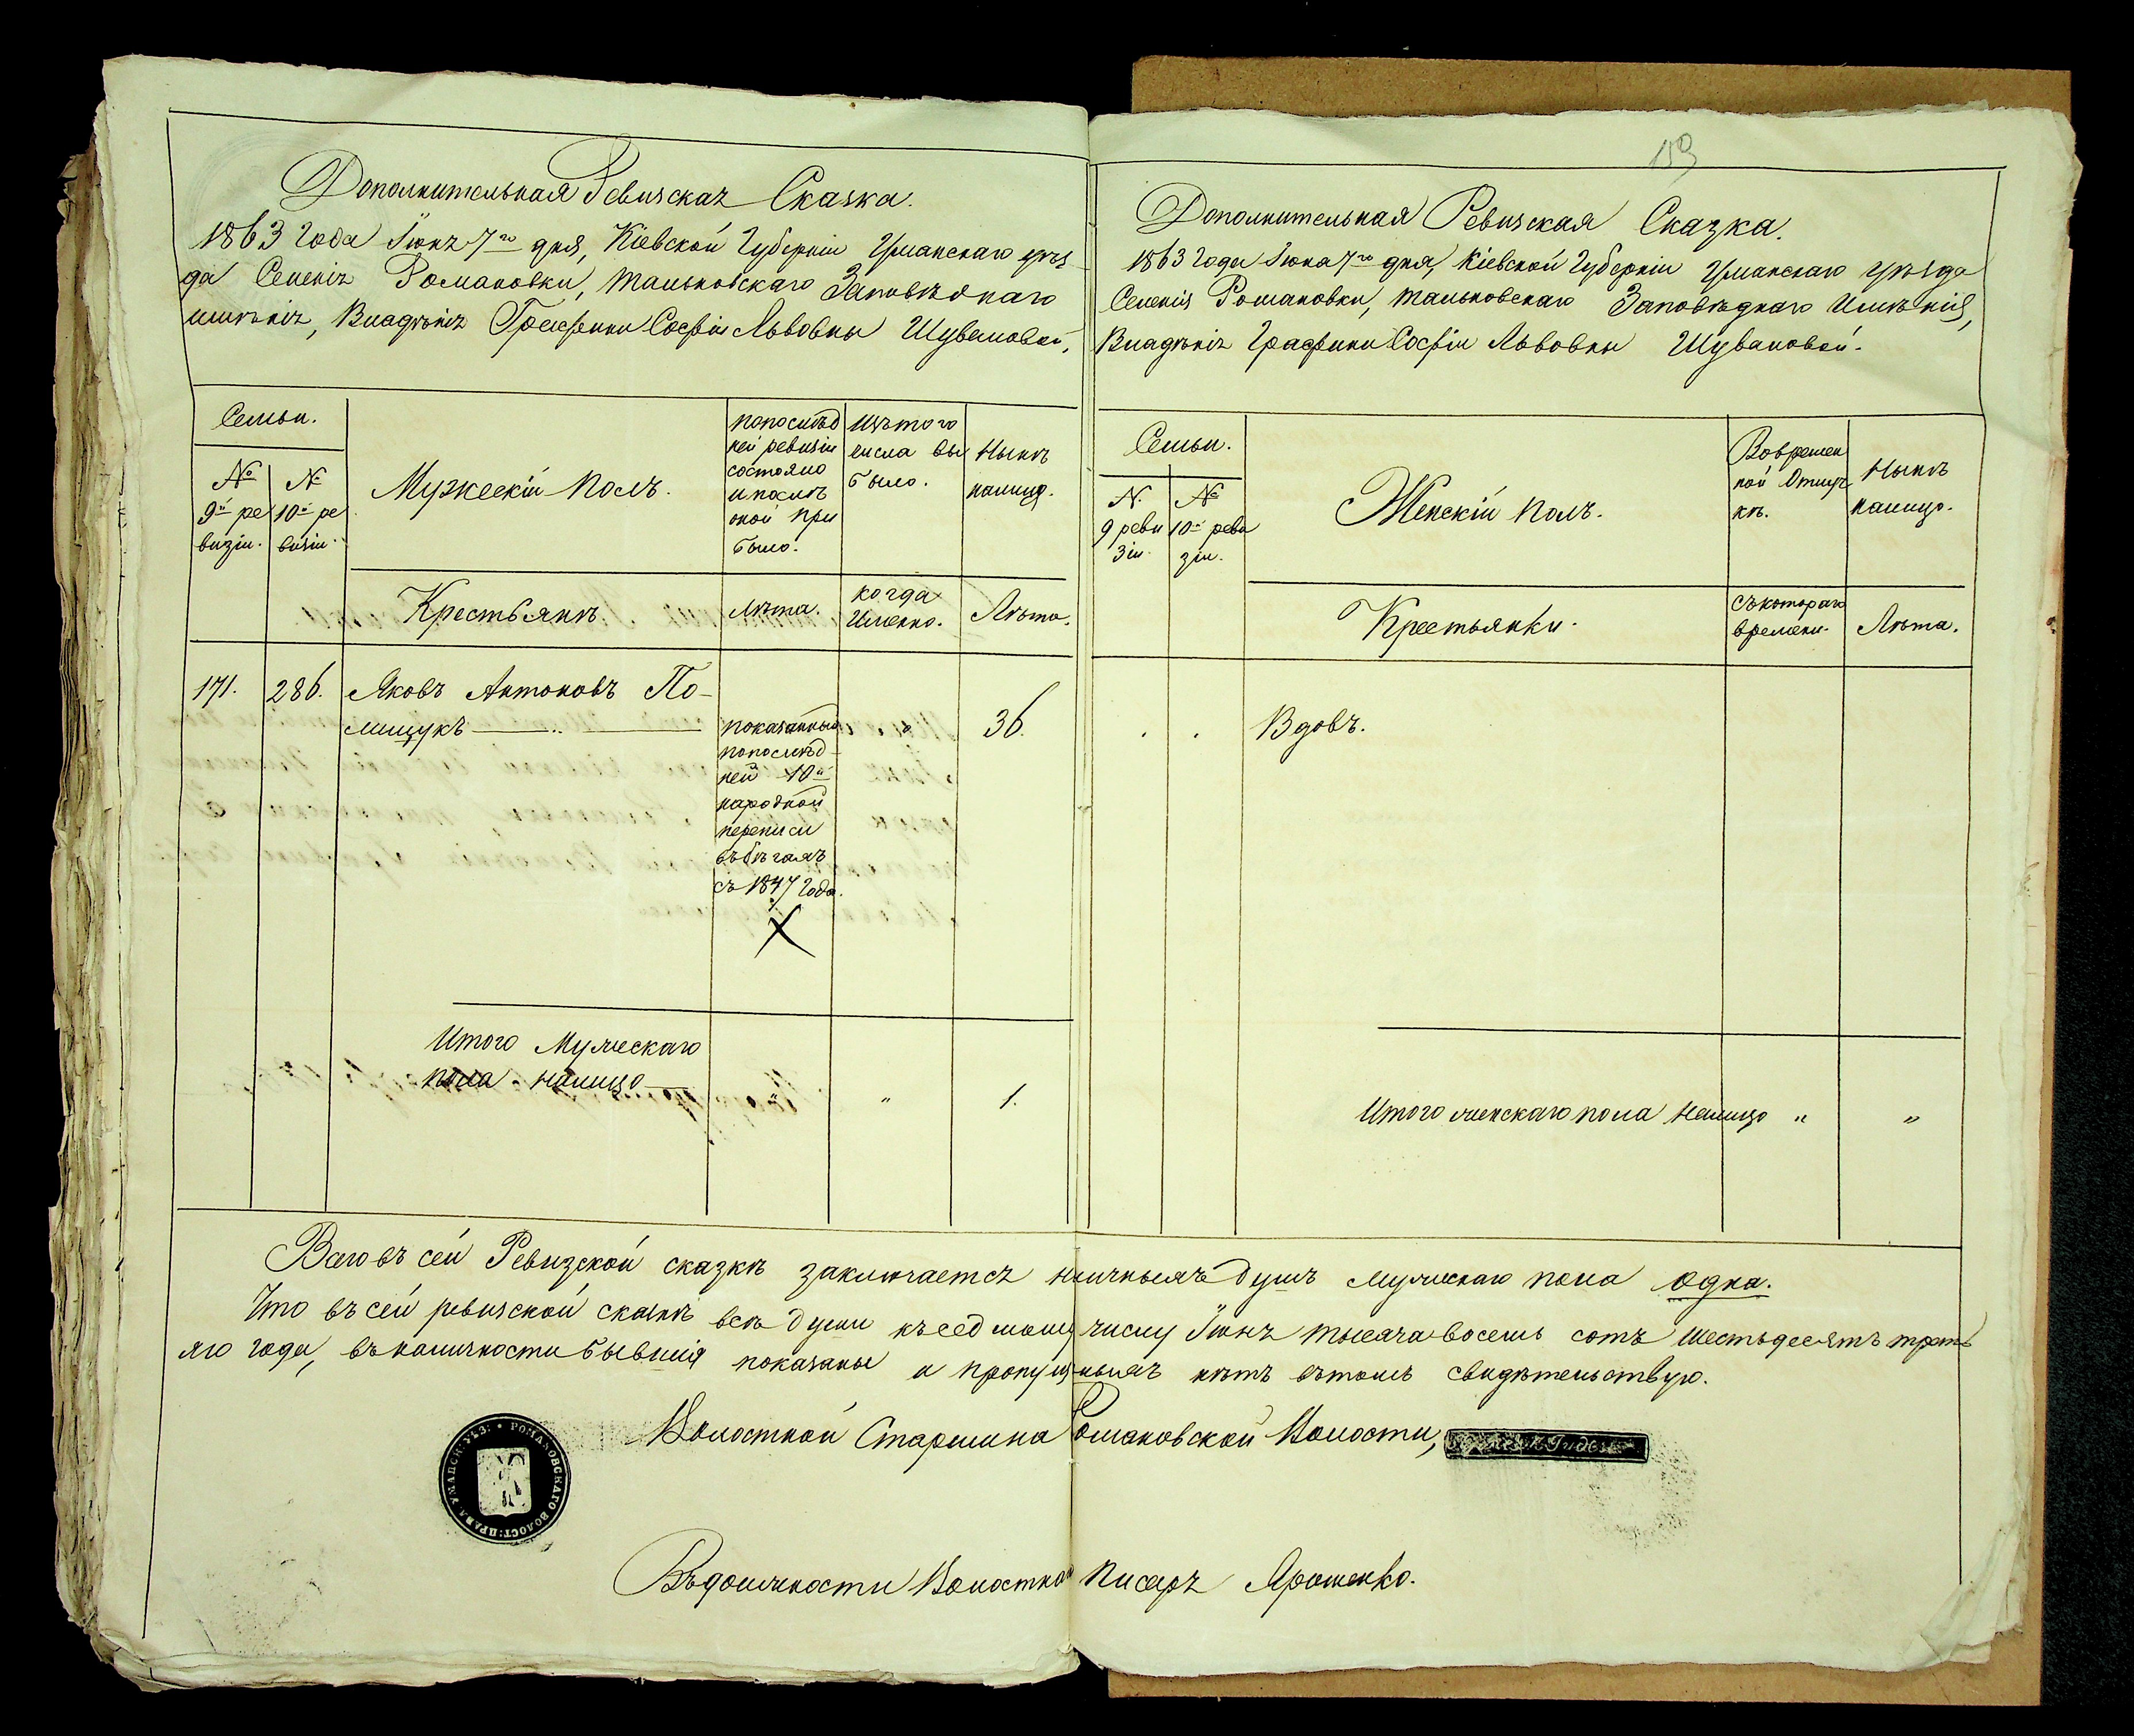 Дополнительная Ревизская Сказка.
1863 года Іюня 7го дня, Кіевской Губерніи Уманскаго уѣз-
да Селенія Романовки, Тальновскаго Заповѣднаго
имѣнія, Владѣнія Графини Софіи Львовны Шуваловой,
Семьи.
№ 9й ревизіи.
№ 10й ревизіи.
Мужескій полъ.
По послѣд
ней ревизіи
состояло
и послѣ
оной при
было.
Изъ того
числа вы
было.
Нынѣ
налицо.
Крестьянѣ
Лѣта.
когда
Именно.
Лѣта.
171.
286.
Яковъ Антоновъ По-
лищукъ
показанный
по послѣд
ней 10й
народной
переписи
въ бѣгахъ
съ 1847 года.
"
36.
Х
Итого Мужескаго
пола налицо
"
"
1.
159
Дополнительная Ревизская Сказка.
1863 года Іюня 7го дня, Кіевской Губерніи Уманскаго уѣзда
Селенія Романовки, Тальновскаго Заповѣднаго Имѣнія,
Владѣнія Графини Софіи Львовны Шуваловой.
Семьи.
№ 9 ревизіи.
№ 10й ревизіи.
Женскій полъ.
Во времен
ной Отлуч
кѣ.
Нынѣ
налицо.
Крестьянки.
Съ котораго
времени.
Лѣта.
Вдовъ.
Итого женскаго пола налицо " "
Всего въ сей Ревизской сказкѣ заключается наличныхъ душъ мужескаго пола одна.
Что въ сей ревизской сказкѣ всѣ души къ седмому числу Іюня тысяча восемь сотъ шестьдесятъ треть
яго года, въ наличности бывшія показаны и пропущныхъ нѣтъ въ томъ свидѣтельствую.
Волостной Старшина Романовской Волости,
РОМАНОВСКАГО ВОЛОСТ: ПРАВЛ: УМАНСК: УѢЗ:
Въ должности Волостной Писаръ Ярошенко.